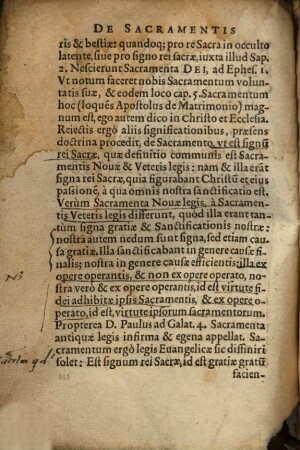 DE SACRAMENTIS
ris & bestiæ: quandoq; pro re Sacra in occulto
latente, siue pro signo rei sacræ, iuxta illud Sap.
2. Nescierunt Sacramenta DEI, ad Ephes. 1.
Vt notum faceret nobis Sacramentum volun-
tatis suæ, & eodem loco cap. 5. Sacramentum
hoc (loquēs Apostolus de Matrimonio) mag-
num est, ego autem dico in Christo et Ecclesia.
Reiectis ergò aliis significationibus, præsens
doctrina procedit, de Sacramento, vt est signū
rei Sacræ, quæ definitio communis est Sacra-
mentis Nouæ & Veteris legis: nam & illa erāt
signa rei Sacræ, quia figurabant Christū et eius
passionē, à qua omnis nostra sanctificatio est.
Verùm Sacramenta Nouæ legis, à Sacramen-
tis Veteris legis differunt, quòd illa erant tan-
tùm signa gratiæ & Sanctificationis nostræ:
nostra autem nedum sunt signa, sed etiam cau-
sa gratiæ. Illa Sanctificabant in genere causæ fi-
nalis; nostra in genere causæ efficientis; illa ex
opere operantis, & non ex opere operato, no-
stra verò & ex opere operantis, id est virtute fi-
dei adhibitæ ipsis Sacramentis, & ex opere o-
perato, id est, virtute ipsorum sacramentorum.
Propterea D. Paulus ad Galat. 4. Sacramenta
antiquæ legis infirma & egena appellat. Sa-
cramentum ergò legis Euangelicæ sic diffiniri
solet: Est signum rei Sacræ, id est gratiæ gratū
facien-